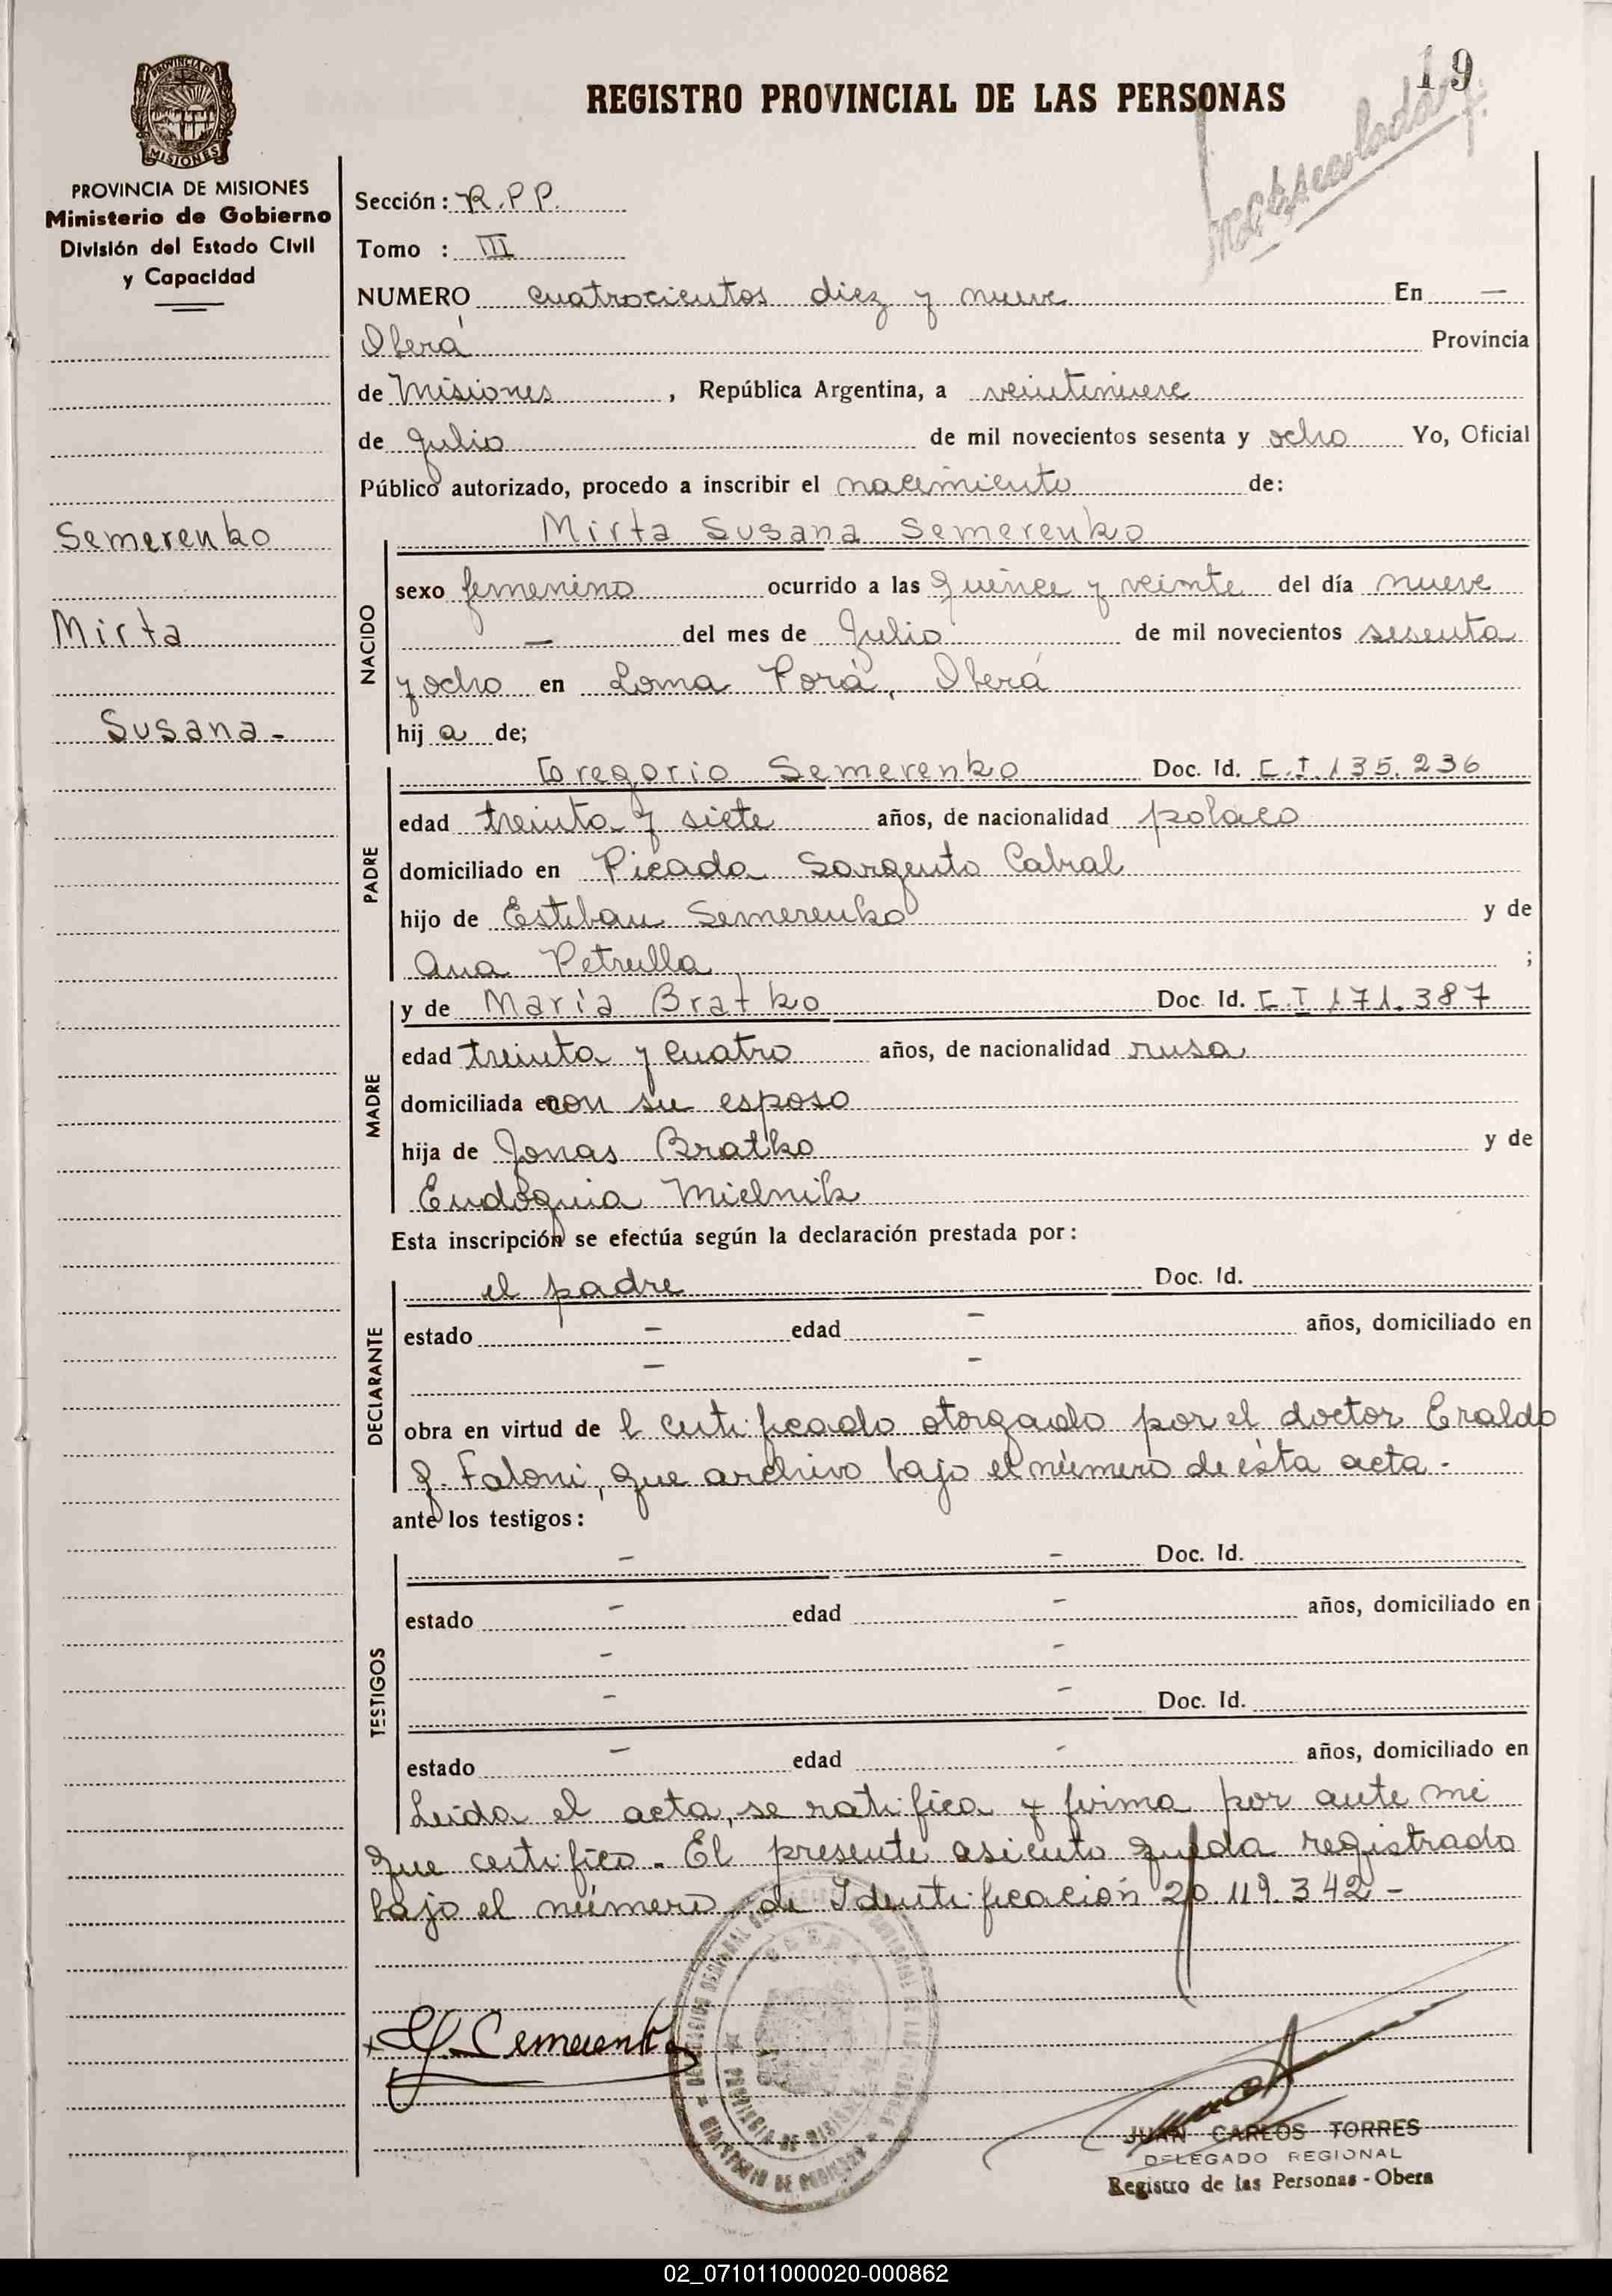 19
REGISTRO PROVINCIAL DE LAS PERSONAS
PROVINCIA DE MISIONES
MISIONES
PROVINCIA DE MISIONES
Ministerio de Gobierno
División del Estado Civil
y Capacidad
Semerenko
Mirta
Susana -
Sección: R.P.P.
Tomo : III
NUMERO cuatrocientos diez y nueve En —
Oberá Provincia
de Misiones, República Argentina, a veintinueve
de Julio de mil novecientos sesenta y ocho Yo, Oficial
Público autorizado, procedo a inscribir el nacimiento de:
NACIDO
Mirta Susana Semerenko
sexo femenino ocurrido a las quince y veinte del día nueve
— del mes de Julio de mil novecientos sesenta
y ocho en Loma Porá, Oberá
hij a de;
PADRE
Gregorio Semerenko Doc. Id. C.I. 135.236
edad treinta y siete años, de nacionalidad polaco
domiciliado en Picada Sargento Cabral
hijo de Esteban Semerenko y de
Ana Petrulla ;
MADRE
y de María Bratko Doc. Id. C.I 171.387
edad treinta y cuatro años, de nacionalidad rusa
domiciliada en con su esposo
hija de Jonas Bratko y de
Eudoquia Mielnik
Esta inscripción se efectúa según la declaración prestada por:
DECLARANTE
el padre Doc. Id.
estado — edad — años, domiciliado en
— —
obra en virtud de l certificado otorgado por el doctor Eraldo
J. Faloni, que archivo bajo el número de ésta acta -
ante los testigos:
TESTIGOS
— — Doc. Id.
estado — edad — años, domiciliado en
— —
— — Doc. Id.
estado — edad - años, domiciliado en
Leida el acta, se ratifica y firma por ante mi
que certifico. El presente asiento queda registrado
bajo el número de Identificación 20.119.342 -
Semerenko
PROVINCIA DE MISIONES
JUAN CARLOS TORRES
DELEGADO REGIONAL
Registro de las Personas - Obera
02_071011000020-000862